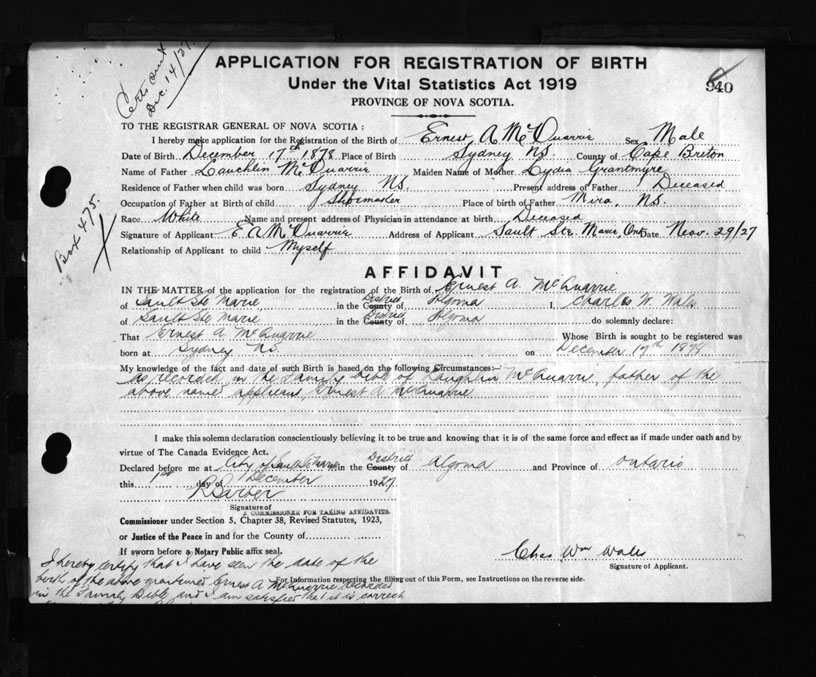 Certs sent
Dec. 14/27
APPLICATION FOR REGISTRATION OF BIRTH
Under the Vital Statistics Act 1919
PROVINCE OF NOVA SCOTIA.
940
TO THE REGISTRAR GENERAL OF NOVA SCOTIA :
I hereby make application for the Registration of the Birth of Ernest A McQuarrie Sex Male
Date of Birth December 17th 1878 Place of Birth Sydney NS. County of Cape Breton
Name of Father Lauchlin McQuarrie Maiden Name of Mother Lydia Grantmyre
Residence of Father when child was born Sydney NS. Present address of Father Deceased
Occupation of Father at Birth of child Shoemaker Place of birth of Father Mira, NS.
Race White Name and present address of Physician in attendance at birth Deceased
Signature of Applicant E A McQuarrie Address of Applicant Sault Ste. Marie, Ont Date Nov. 29/27
Relationship of Applicant to child Myself
Box 475.
AFFIDAVIT
IN THE MATTER of the application for the registration of the Birth of Ernest A. McQuarrie
of Sault Ste Marie in the District County of Algoma I, Charles W. Wales
of Sault Ste Marie in the District County of Algoma do solemnly declare:
That Ernest A McQuarrie Whose Birth is sought to be registered was
born at Sydney NS. on December 17th 1878
My knowledge of the fact and date of such Birth is based on the following Circumstances:—
As recorded in the Family bible of Laughlin McQuarrie, father of the
above named applicant, Ernest A McQuarrie
I make this solemn declaration conscientiously believing it to be true and knowing that it is of the same force and effect as if made under oath and by
virtue of The Canada Evidence Act.
Declared before me at City of Sault Ste Marie in the District County of Algoma and Province of Ontario
this 1st day of December 1927
R Barber
Signature of
A COMMISSIONER FOR TAKING AFFIDAVITS.
Commissioner under Section 5, Chapter 38, Revised Statutes, 1923,
or Justice of the Peace in and for the County of
If sworn before a Notary Public affix seal.
Chas. Wm Wales
Signature of Applicant.
I hereby certify that I have seen the date of the
birth of the above mentioned Ernest A McQuarrie recorded
For Information respecting the filling out of this Form, see Instructions on the reverse side.
in the Family Bible and I am satisfied that it is correct